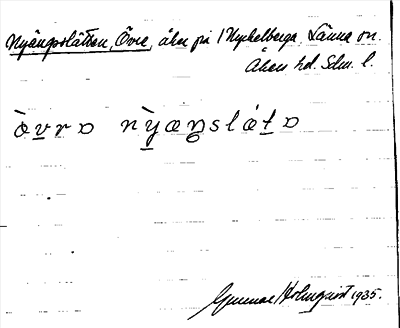 Nyängsslätten, Övre, åker på 1 Nyckelberga, Länna sn.
Åkers hd. Sdm. l.
ò̀vrɒ nỳæŋslátɒ
Gunnar Holmquist 1935.